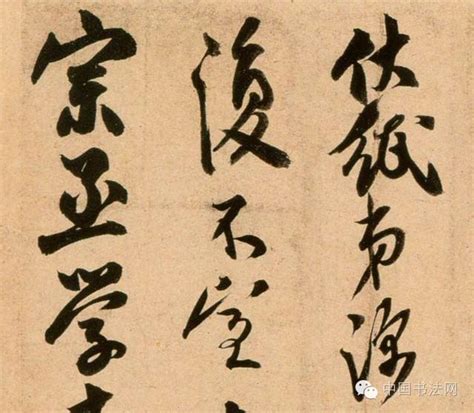 伏紙深
復不宣
宗丞学
中国书法网